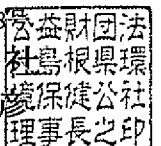 公益財団法
社島根県環
彦保健公社
理事長之印